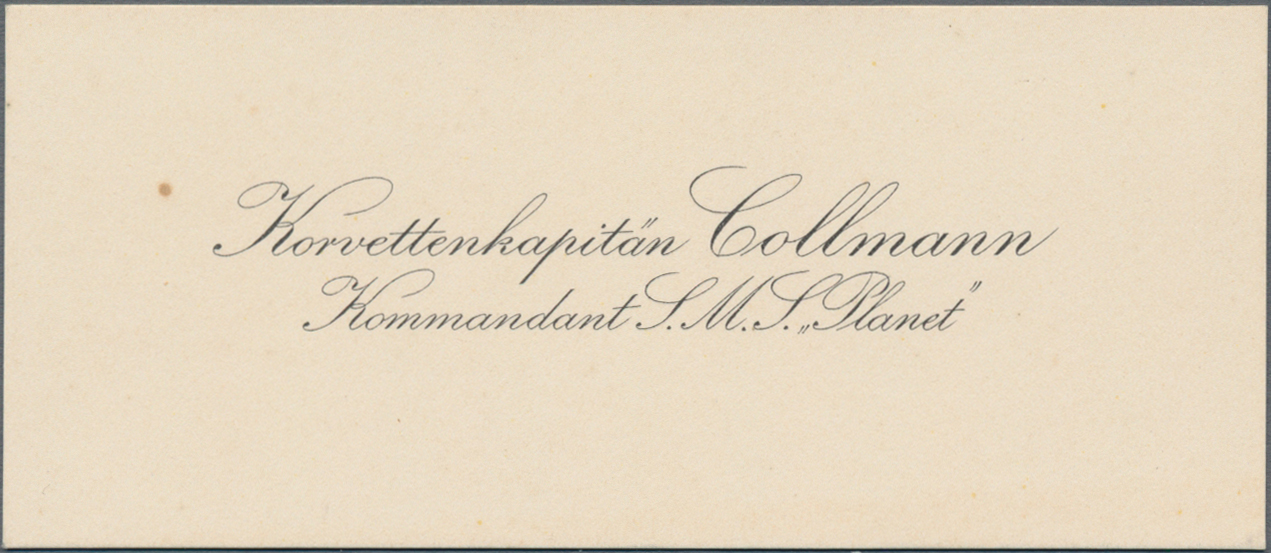 Korvettenkapitän Collmann
Kommandant S.M.S. „Planet"